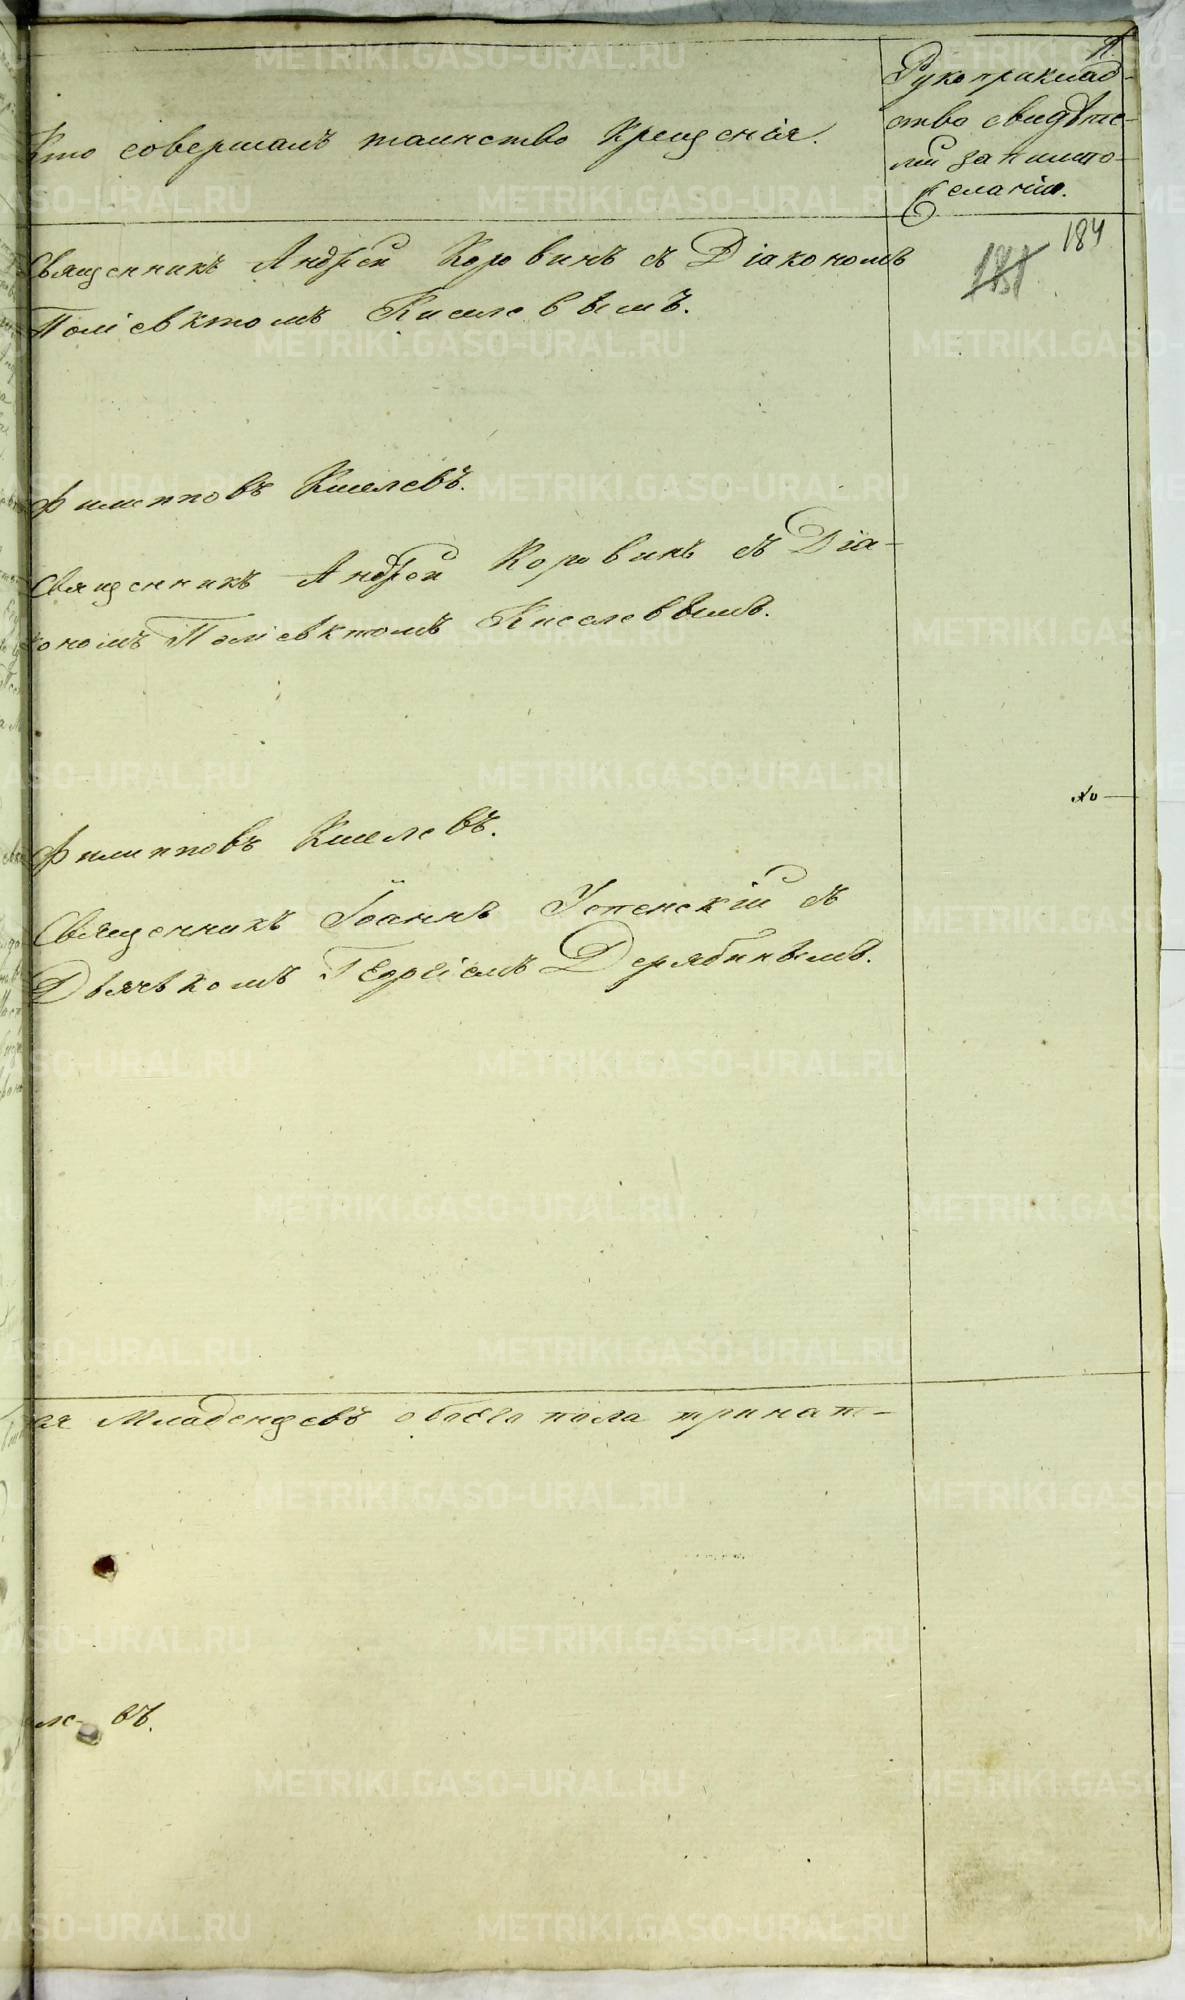 Кто совершалъ таинство Крещенія.
Рукоприклад-
ство свидѣте-
лей записа
по желанію.
184
181
Священникъ Андрей Коровинъ съ Діакономъ
Поліевктомъ Киселевымъ.
Филипповъ Киселевъ.
Священникъ Андрей Коровинъ съ Діа-
кономъ Поліевктомъ Киселевымъ.
Филипповъ Киселевъ.
Священникъ Іоаннъ Успенскій съ
Дьячькомъ Георгіемъ Дерябинымъ.
Младенцевъ обоего пола тринат-
евъ.
METRIKI.GASO-URAL.RU